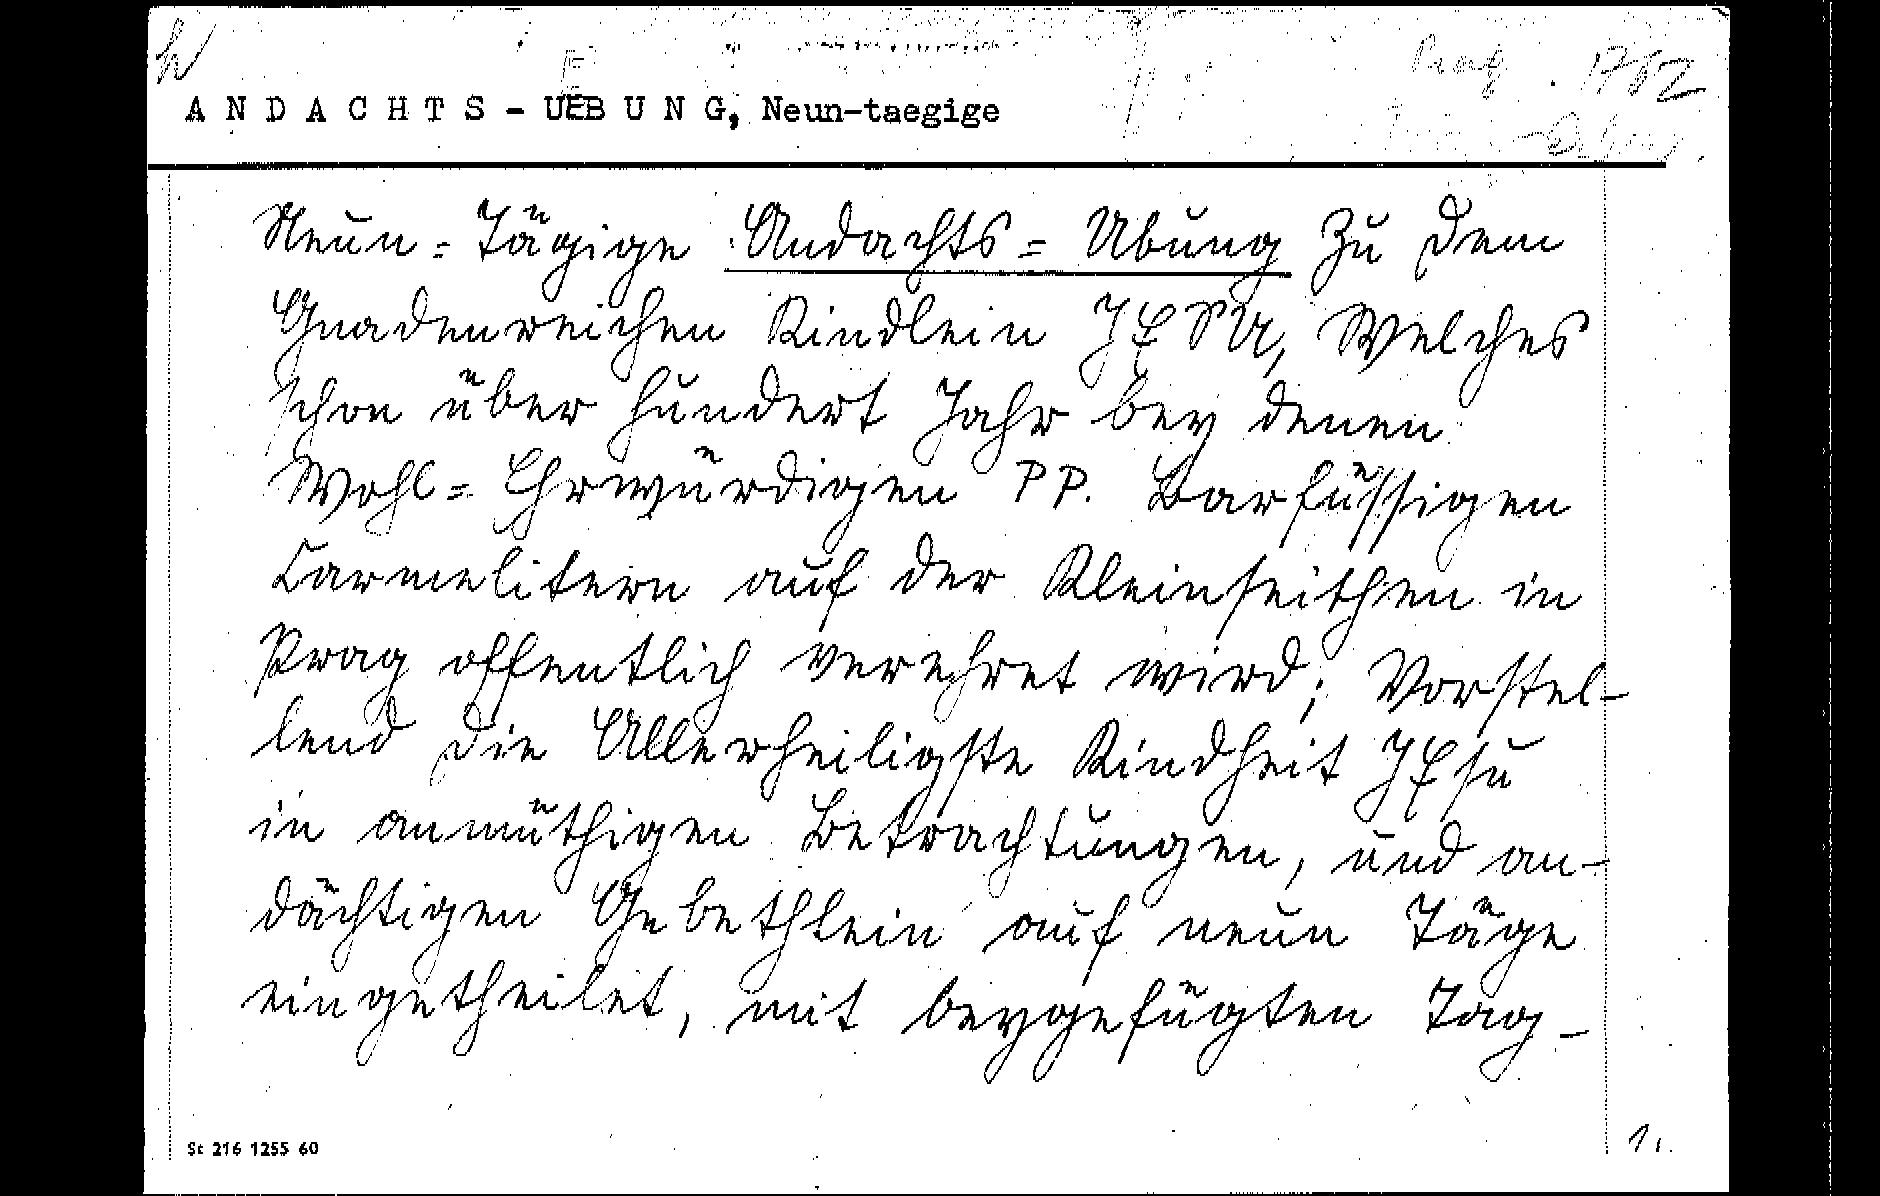 h
Prag. 1762
A N D A C H T S - UEB U N G, Neun-taegige
Neun-Tägige Andachts-Ubung Zu dem
Gnadenreichen Kindlein JESU, Welches
schon über hundert Jahr bey denen
Wohl-Ehrwürdigen PP. Barfüssigen
Carmelitern auf der Kleinseithen in
Prag offentlich verehret wird; Vorstel-
lend die Allerheiligste Kindheit JEsu
in anmüthigen Betrachtungen, und an-
dächtigen Gebethlein auf neun Täge
eingetheilet, mit beygefügten Tag-
St 216 1255 60
1.